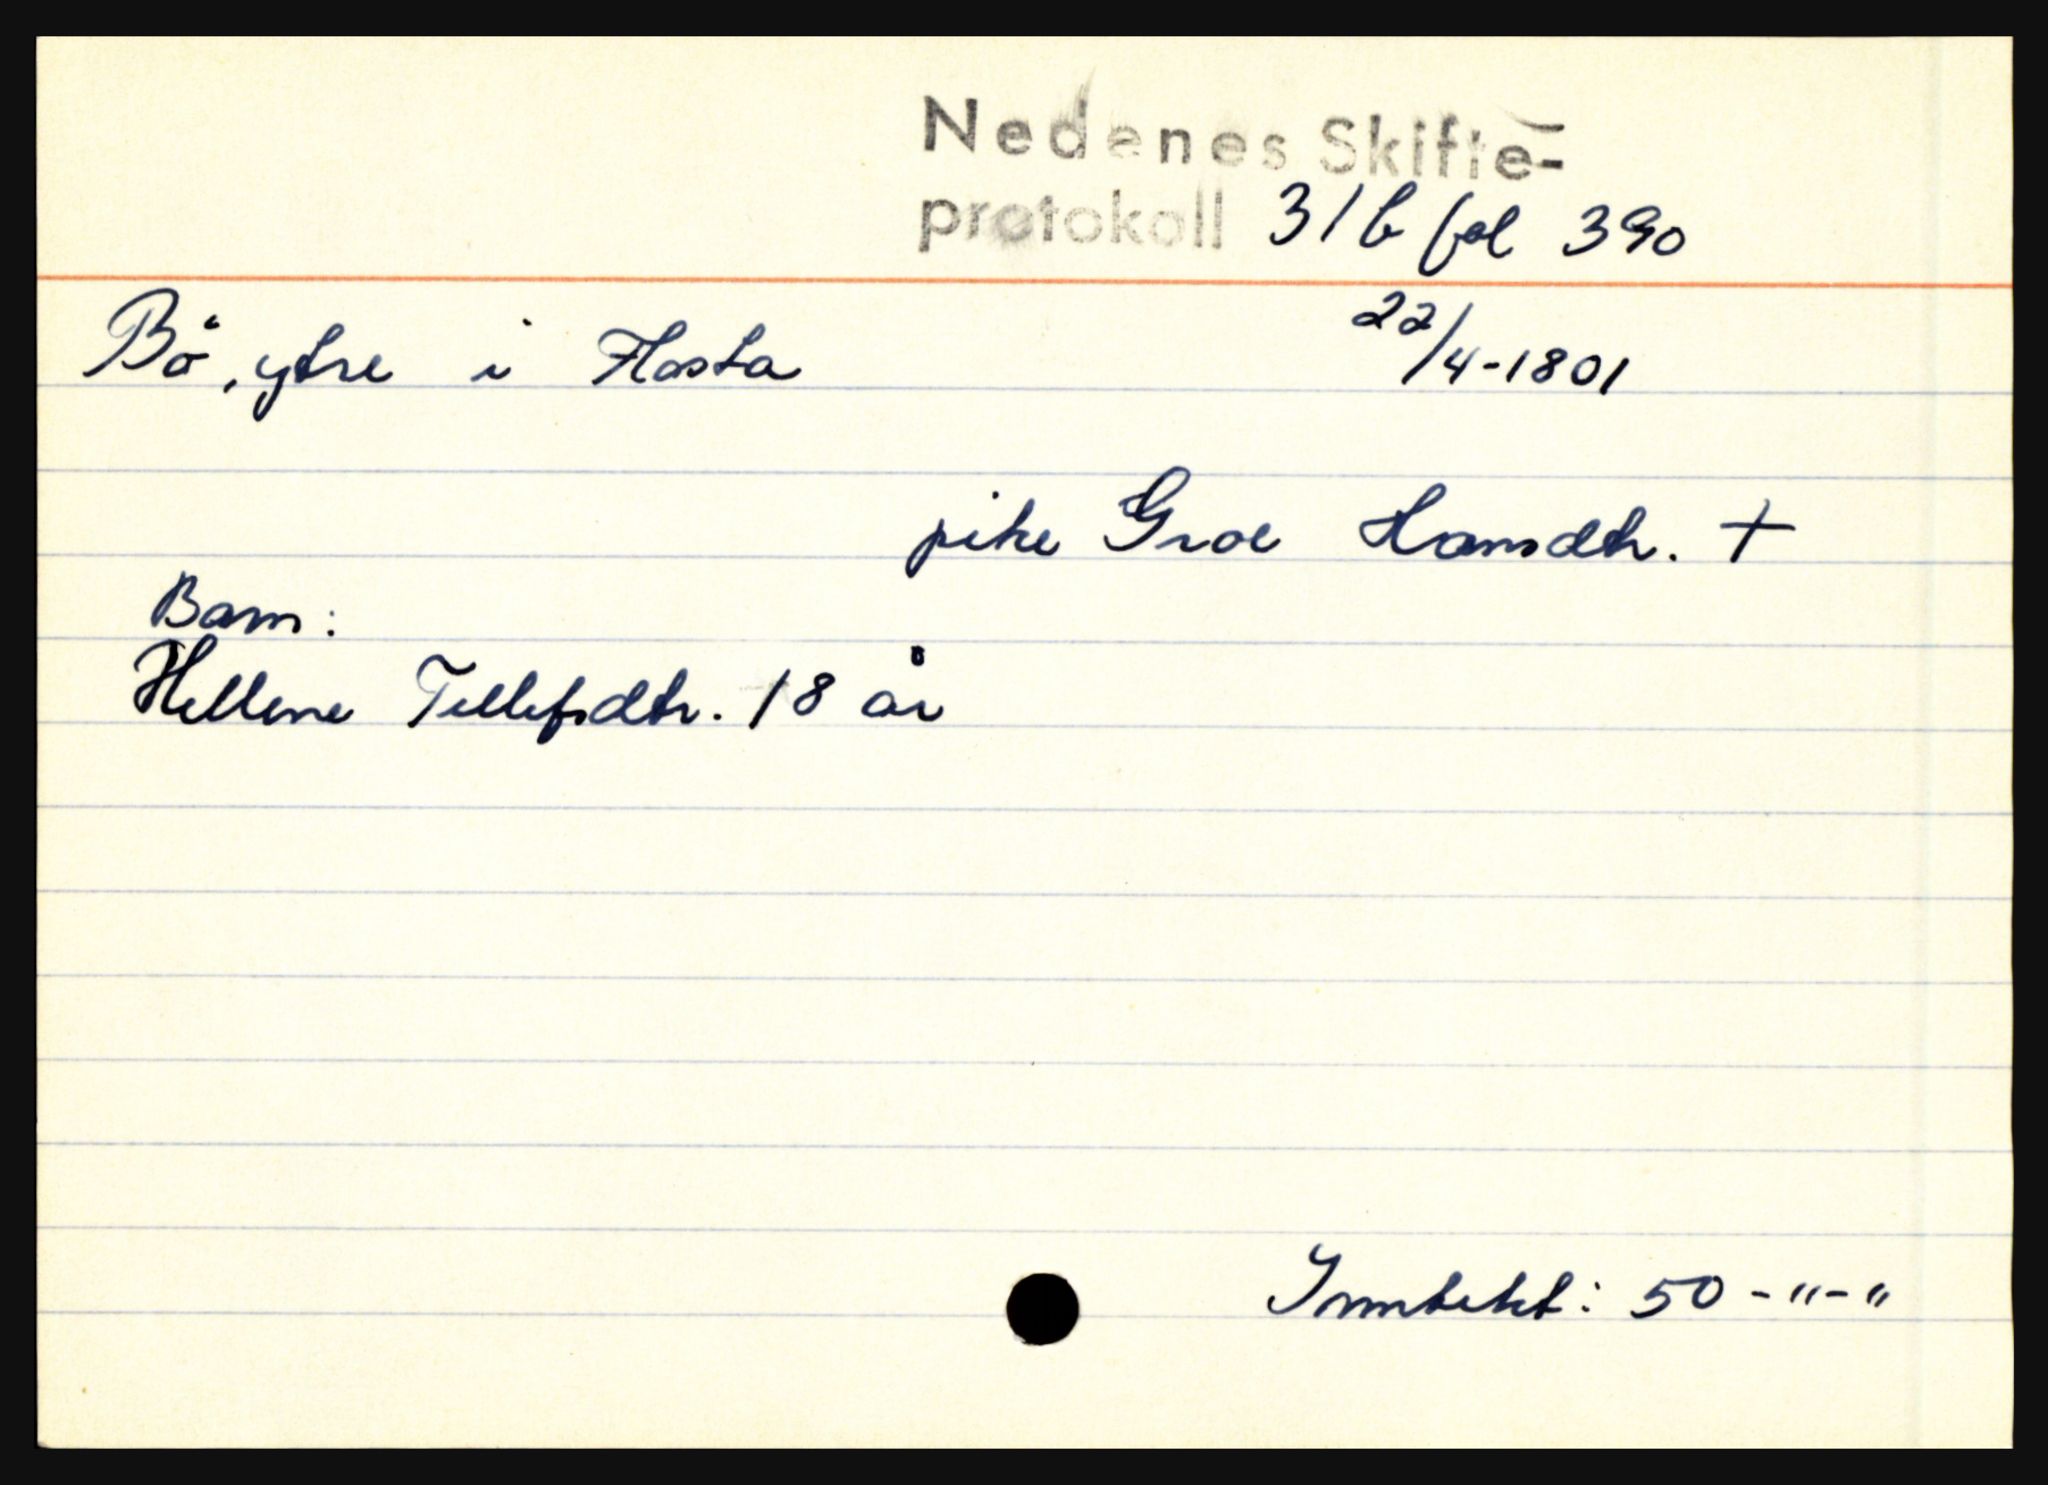 Nedenes Skifte-
protokoll 31b fol 390
Bö, ytre i Flosta 22/4-1801
pike Groe Hansdtr. +
Barn:
Hellene Tellefsdtr. 18 år
Inntekt: 50-"-"